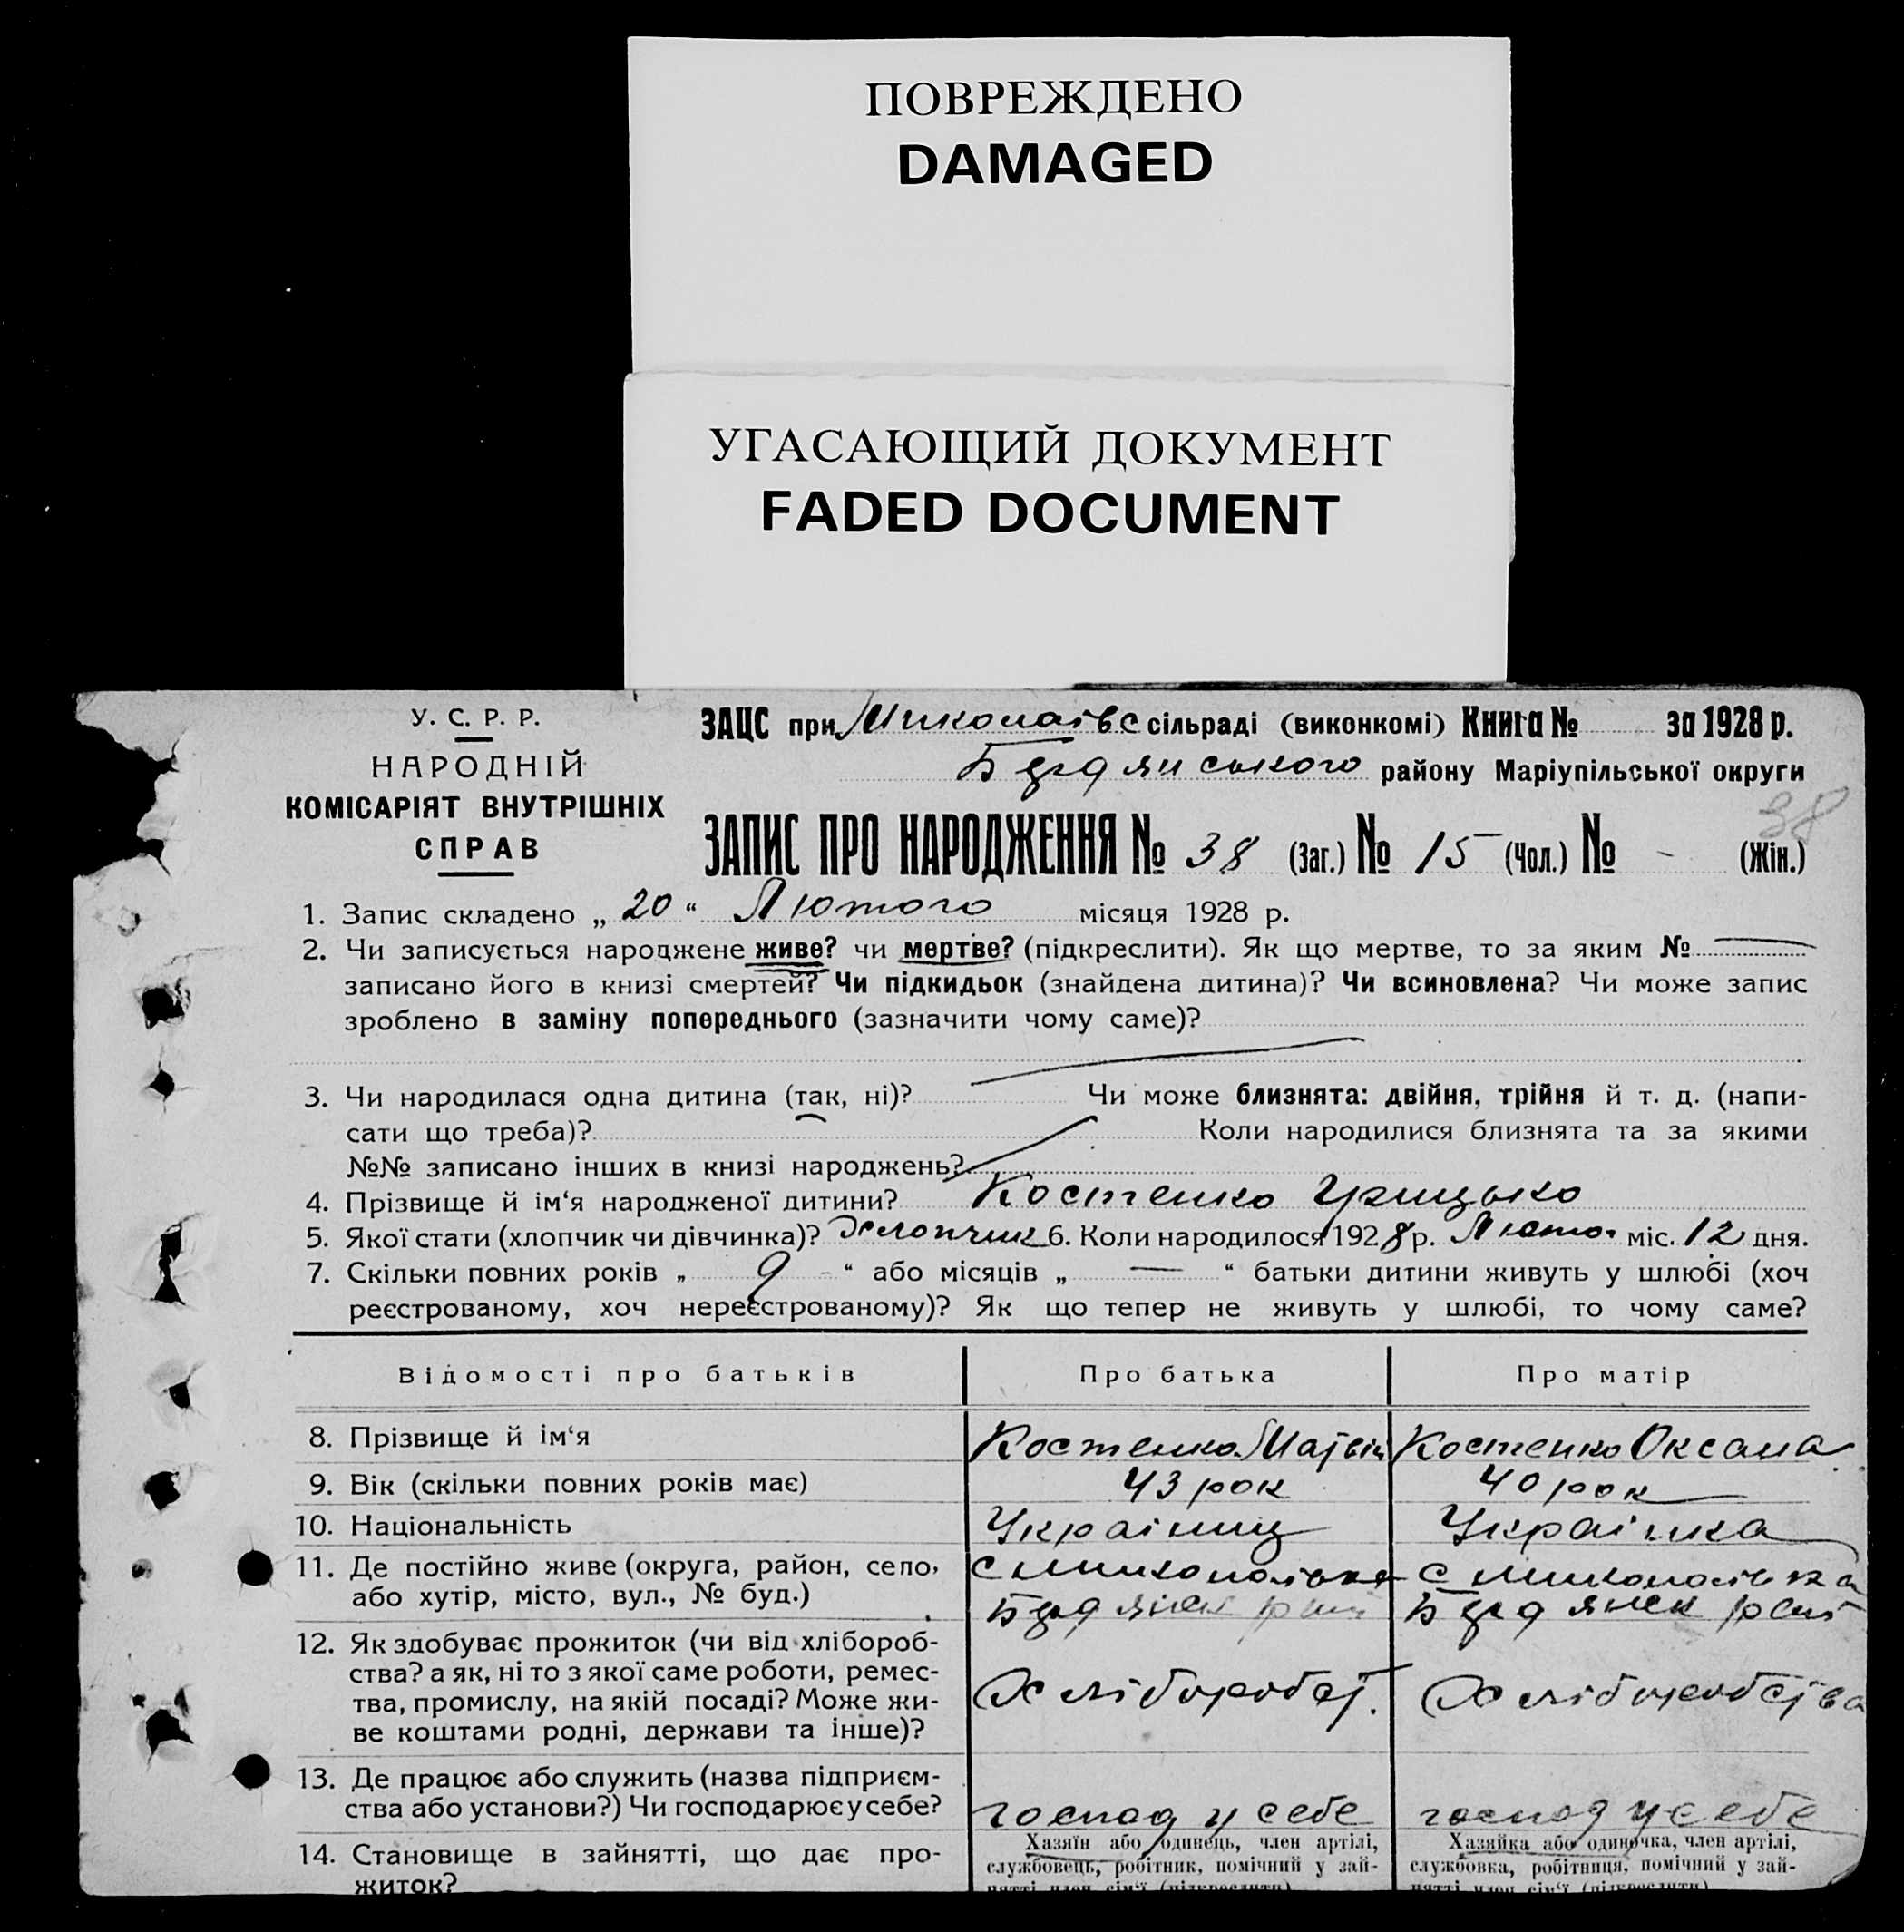 ПОВРЕЖДЕНО
DAMAGED
УГАСАЮЩИЙ ДОКУМЕНТ
FADED DOCUMENT
У. С. Р. Р.
НАРОДНІЙ
КОМІСАРІЯТ ВНУТРІШНІХ
СПРАВ
ЗАЦС при Миколаївс сільраді (виконкомі) Книга № за 1928 р.
Бердянського району Маріупільської округи
38
ЗАПИС ПРО НАРОДЖЕННЯ № 38 (Заг.) № 15 (Чол.) № - (Жін.)
1. Запис складено „ 20 “ Лютого місяця 1928 р.
2. Чи записується народжене живе? чи мертве? (підкреслити). Як що мертве, то за яким № —
записано його в книзі смертей? Чи підкидьок (знайдена дитина)? Чи всиновлена? Чи може запис
зроблено в заміну попереднього (зазначити чому саме)?
3. Чи народилася одна дитина (так, ні)? Чи може близнята: двійня, трійня й т. д. (напи-
сати що треба)? Коли народилися близнята та за якими
№№ записано інших в книзі народжень?
4. Прізвище й ім‘я народженої дитини? Костенко Грицько
5. Якої стати (хлопчик чи дівчинка)? Хлопчик 6. Коли народилося 1928 р. Люто. міс. 12 дня.
7. Скільки повних років „ 9 - “ або місяців „ — “ батьки дитини живуть у шлюбі (хоч
реєстрованому, хоч нереєстрованому)? Як що тепер не живуть у шлюбі, то чому саме?
Відомості про батьків Про батька Про матір
8. Прізвище й ім‘я Костенко Матвій Костенко Оксана
9. Вік (скільки повних років має) 43 рок 40 рок
10. Національність Українец Українка
11. Де постійно живе (округа, район, село, с с
або хутір, місто, вул., № буд.) Бердянск Бердянск
12. Як здобуває прожиток (чи від хлібороб-
ства? а як, ні то з якої саме роботи, ремес-
тва, промислу, на якій посаді? Може жи- Хліборобст. Хліборобства
ве коштами родні, держави та інше)?
13. Де працює або служить (назва підприєм-
ства або установи?) Чи господарює у себе? господ у себе господ у себе
14. Становище в зайнятті, що дає про-
житок?
Хазяїн або одинець, член артілі,
службовець, робітник, помічний у зай-
нятті член сім‘ї (підкреслити)
Хазяйка або одиночка, член артілі,
службовка, робітниця, помічний у зай-
нятті член сім‘ї (підкреслити)